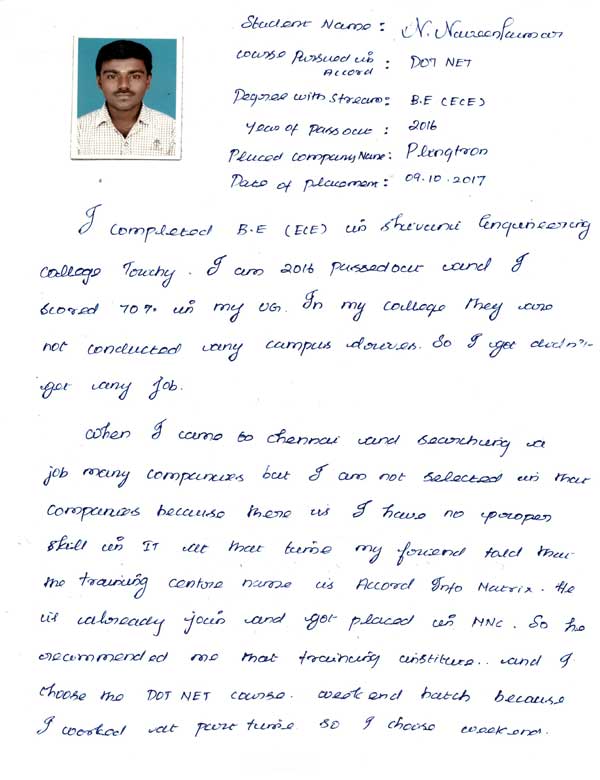 Student Name : N. Naveenkumar
Course Pursued in Accord : DOT NET
Degree with Stream : B.E (ECE)
Year of Pass out : 2016
Placed Company Name : Plingtron
Date of placement : 09.10.2017
I completed B.E (ECE) in Shivani Engineering
College Touchy. I am 2016 passedout and I
scored 70% in my UG. In my college they are
not conducted any campus drives. So I get didn't
get any job.
When I came to chennai and searching a
job many companies but I am not selected in that
companies because there is I have no proper
skill in IT at that time my friend told that
the training centre name is Accord Info Matrix. He
is already join and got placed in MNC. So he
recommended me that training institute.. and I
choose the DOT NET course. weekend batch because
I worked at part time so I choose weekend.